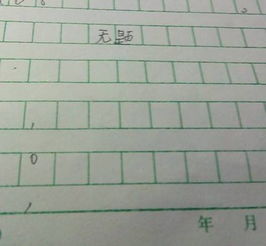 。
无题
.
,
0
,
年 月